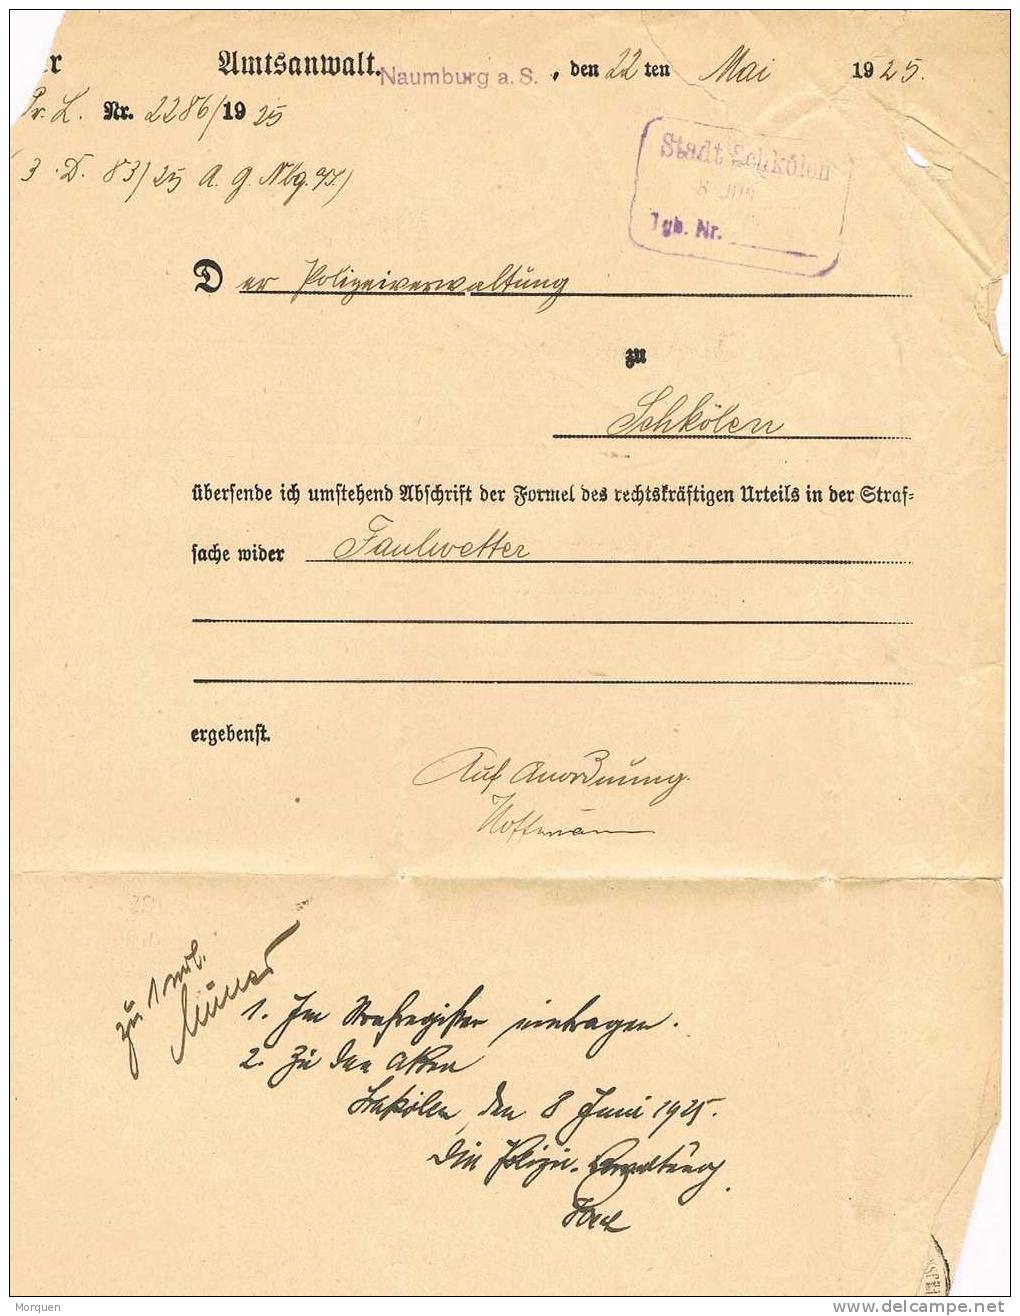 Amtsanwalt. Naumburg a. S. , den 22 ten Mai 1925.
Pr. L. Nr. 2286/1925
3. D. 83/25 A. G. Nbg.
Stadt Schkölen
8 JUN
Tgb. Nr.
Der Polizeiverwaltung
zu
Schkölen
übersende ich umstehend Abschrift der Formel des rechtskräftigen Urteils in der Straf=
sache wider Faulwetter
ergebenst.
Auf Anordnung.
Hoffmann
zu 1 erl.
1. Im Strafregister eintragen.
2. Zu den Akten
Schkölen, den 8 Juni 1925.
Die Polizei-Verwaltung
Morquen
delcampe.net